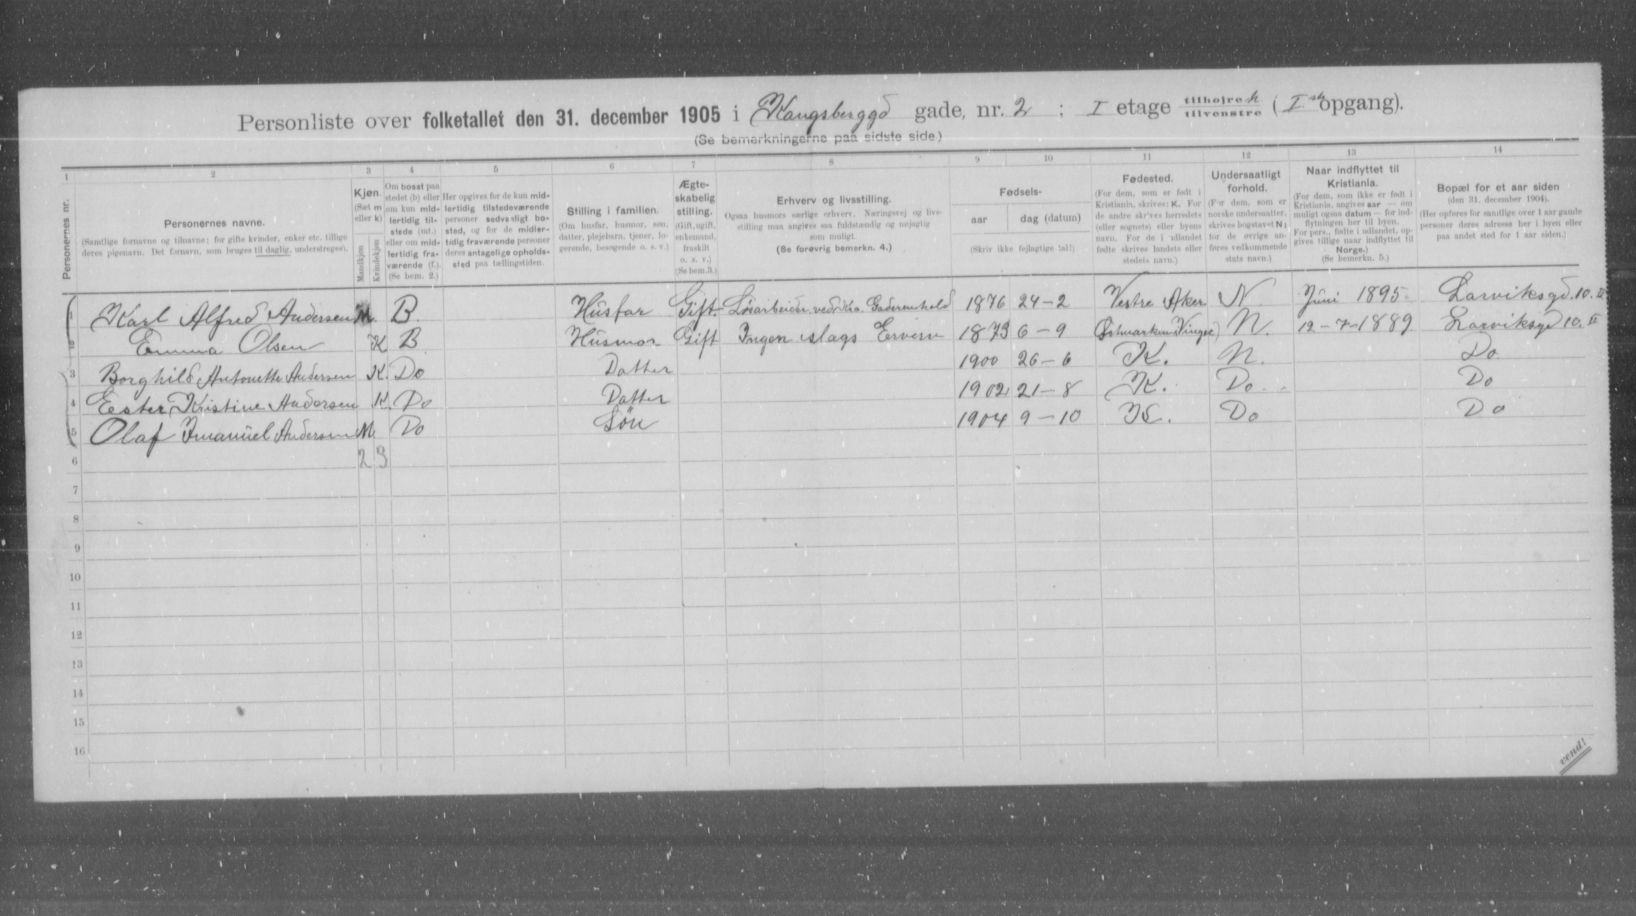 Personliste over folketallet den 31. december 1905 i Kongsberggd gade, nr. 2 ; I etage tilhøire h tilvenstre ( I ste opgang).
(Se bemerkningerne paa sidste side.)
1 2 3 4 5 6 7 8 9 10 11 12 13 14
Personernes nr.
Personernes navne.
(Samtlige fornavne og tilnavne; for gifte kvinder, enker etc. tillige
deres pigenavn. Det fornavn, som bruges til daglig, understreges).
Kjøn.
(Sæt m
eller k)
Mandkjøn
Kvindekjøn
Om bosat paa
stedet (b) eller
om kun mid-
lertidig til-
stede (mt.)
eller om mid-
lertidig fra-
værende (f.).
(Se bem. 2.)
Her opgives for de kun mid-
lertidig tilstedeværende
personer sedvanligt bo-
sted, og for de midler-
tidig fraværende personer
deres antagelige opholds-
sted paa tællingstiden.
Stilling i familien.
(Om husfar, husmor, søn,
datter, plejebarn, tjener, lo-
gerende, besøgende o. s. v.)
Ægte-
skabelig
stilling.
(Gift, ugift,
enkemand,
fraskilt
o. s. v.)
(Se bem. 3.)
Erhverv og livsstilling.
Ogsaa husmors særlige erhverv. Næringsvej og livs-
stilling maa angives saa fuldstændig og nøjagtig
som muligt.
(Se forøvrig bemerkn. 4.)
Fødsels-
aar
dag (datum)
(Skriv ikke fejlagtige tal!)
Fødested.
(For dem, som er født i
Kristiania, skrives: K. For
de andre skrives herredets
(eller sognets) eller byens
navn. For de i udlandet
fødte skrives landets eller
stedets navn.)
Undersaatligt
forhold.
(For dem, som er
norske undersaatter,
skrives bogstavet N;
for de øvrige an-
føres vedkommende
stats navn.)
Naar indflyttet til
Kristiania.
(For dem, som ikke er født i
Kristiania, angives aar — om
muligt ogsaa datum — for ind-
flytningen her til byen.
For pers., fødte i udlandet, op-
gives tillige naar indflyttet til
Norge.)
(Se bemerkn. 5.)
Bopæl for et aar siden
(den 31. december 1904).
(Her opføres for samtlige over 1 aar gamle
personer deres adresse her i byen eller
paa andet sted for 1 aar siden.)
1 Karl Alfred Andersen M. B Husfar Gift Løsarbeider ved Kra. 1876 24-2 Vestre Aker N Juni 1895 Larviksgd. 10. II
2 Emma Olsen K B Husmor Gift Ingen slags Erverv 1873 6-9 Vinger) N. 12-7-1889 Larviksgd 10. II
3 Borghild Antonette Andersen K. Do Datter 1900 26-6 K. N. Do
4 Ester Kristine Andersen K. Do Datter 1902 21-8 K. Do Do
5 Olaf Imanuel Andersen M. Do Søn 1904 9-10 K. Do Do
6 2 3
7
8
9
10
11
12
13
14
15
16
vend!